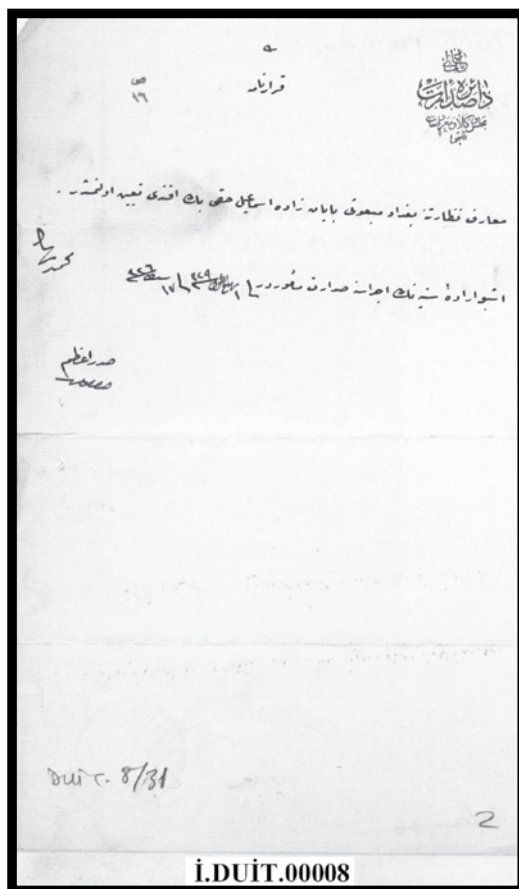 باب عالی
دائرۀ صدارت
قرارنامه
١٦
معارف نظارتنه بغداد مبعوثی بابان زاده اسماعیل حقی بك افندی تعیین اولنمشدر .
اشبو ارادۀ سنیه‌نك اجراسنه صدارت مأموردر
١٣٢٩ ١٧ ١٣٢٦
محمد رشاد
صدر اعظم
DUİT. 8/31
2
İ.DUİT.00008